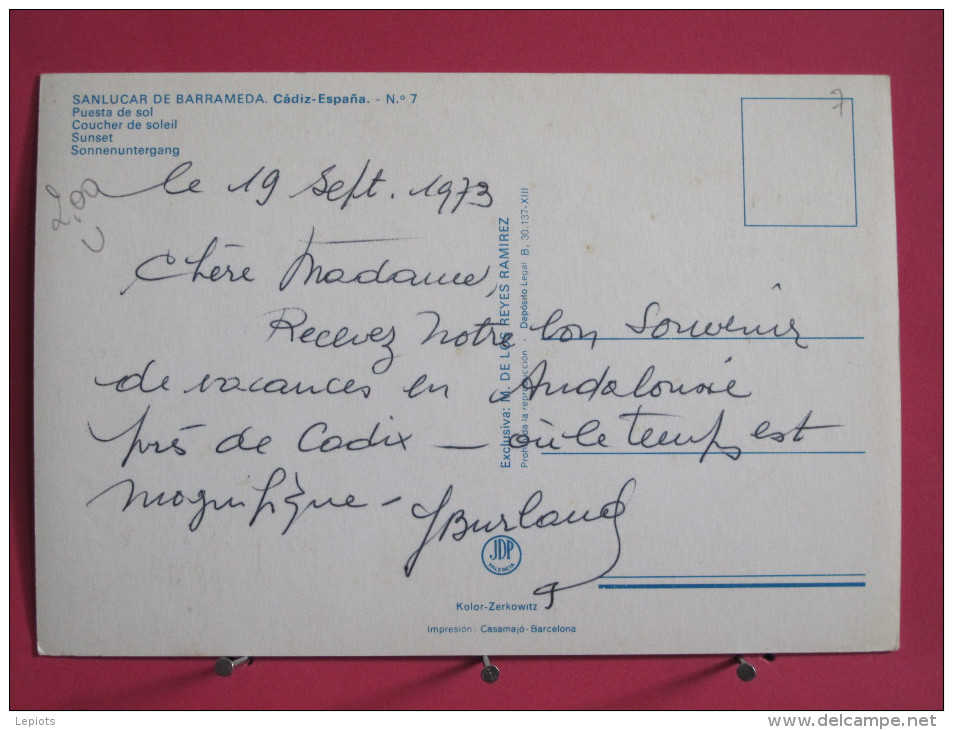 SANLUCAR DE BARRAMEDA. Cádiz-España. - N.º 7
Puesta de sol
Coucher de soleil
Sunset
Sonnenuntergang
7
2,00
le 19 Sept. 1973
Chère Madame,
Recevez notre bon Souvenir
de vacances en Andalousie
près de Cadix - où le temps est
magnifique -
JBurland
Exclusiva: M. DE LOS REYES RAMIREZ
Prohibida la reproducción - Depósito Legal B. 30.137-XIII
JDP
VALENCIA
Kolor-Zerkowitz
Impresión: Casamajó-Barcelona
Lepiots
www.delcampe.net